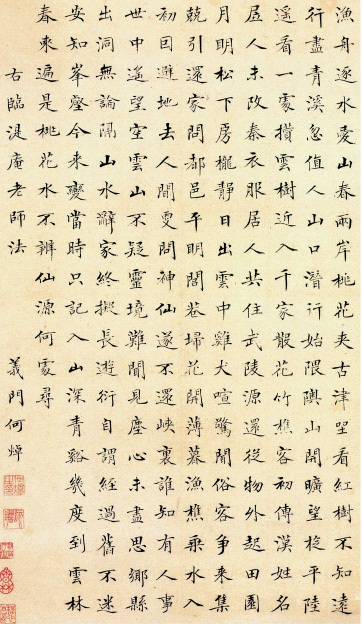 漁舟逐水愛山春兩岸桃花夾古津坐看紅樹不知遠
行盡青溪忽值人山口潛行始隈隩山開曠望旋平陸
遙看一處攢雲樹近入千家散花竹樵客初傳漢姓名
居人未改秦衣服居人共住武陵源還從物外起田園
月明松下房櫳靜日出雲中雞犬喧驚聞俗客爭來集
競引還家問都邑平明閭巷埽花開薄暮漁樵乘水入
初因避地去人間更問神仙遂不還峽裏誰知有人事
世中遙望空雲山不疑靈境難聞見塵心未盡思鄉縣
出洞無論隔山水辭家終擬長遊衍自謂經過舊不迷
安知峯壑今來變當時只記入山深青谿幾度到雲林
春來遍是桃花水不辨仙源何處尋
右臨湜庵老師法 義門何焯